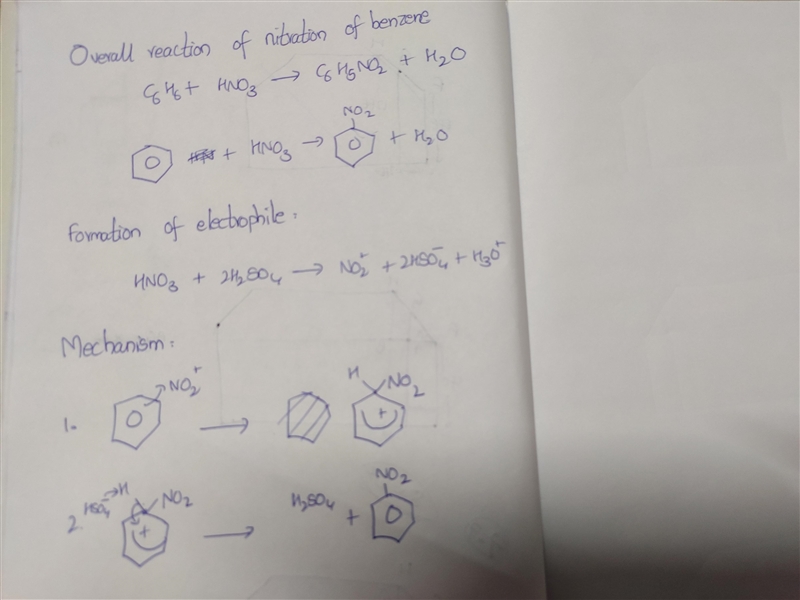 Overall reaction of nitration of benzene
C6H6 + HNO3 → C6H5NO2 + H2O
NO2
+ HNO3 → + H2O
Formation of electrophile:
HNO3 + 2H2SO4 → NO2+ + 2HSO4- + H3O+
Mechanism:
1. NO2+ → H NO2 +
2. HSO4- H NO2 + → H2SO4 + NO2